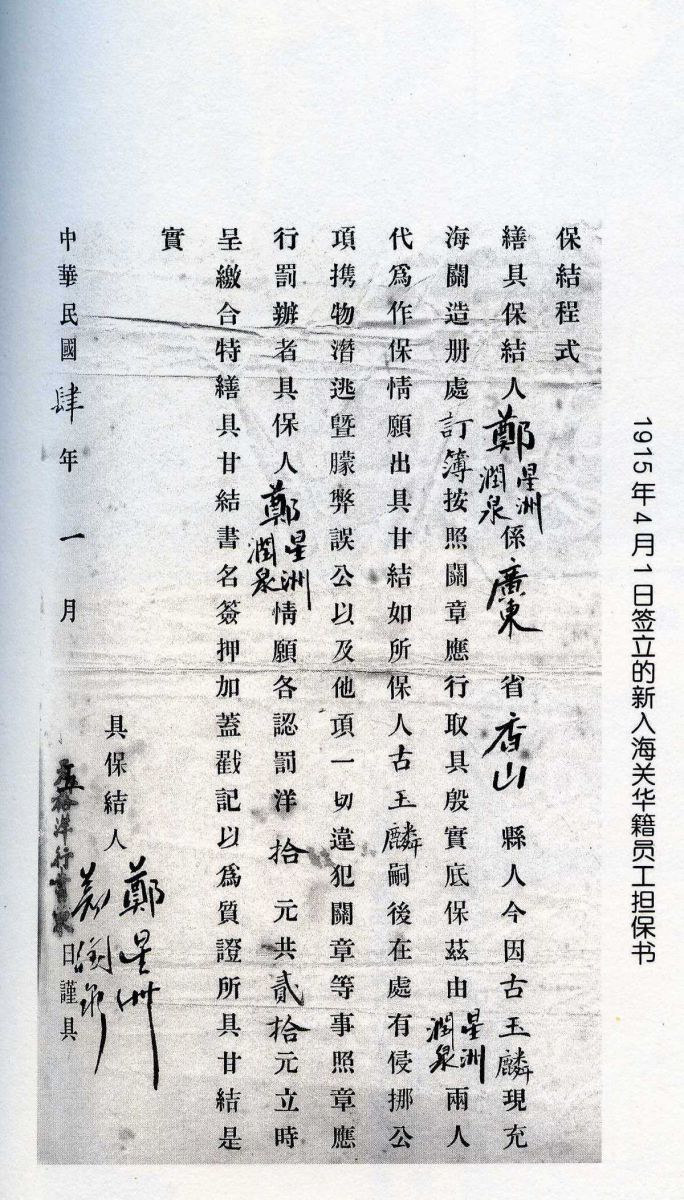 1915年4月1日签立的新入海关华籍员工担保书
保結程式
繕具保結人鄭星洲潤泉係廣東省香山縣人今因古玉麟現充
海關造册處訂簿按照關章應行取具殷實底保茲由星洲潤泉兩人
代爲作保情願出具甘結如所保人古玉麟嗣後在處有侵挪公
項携物潛逃暨朦弊誤公以及他項一切違犯關章等事照章應
行罰辦者具保人鄭星洲潤泉情願各認罰洋拾元共貳拾元立時
呈繳合特繕具甘結書名簽押加蓋戳記以爲質證所具甘結是
實
具保結人鄭星洲
中華民國肆年一月日謹具